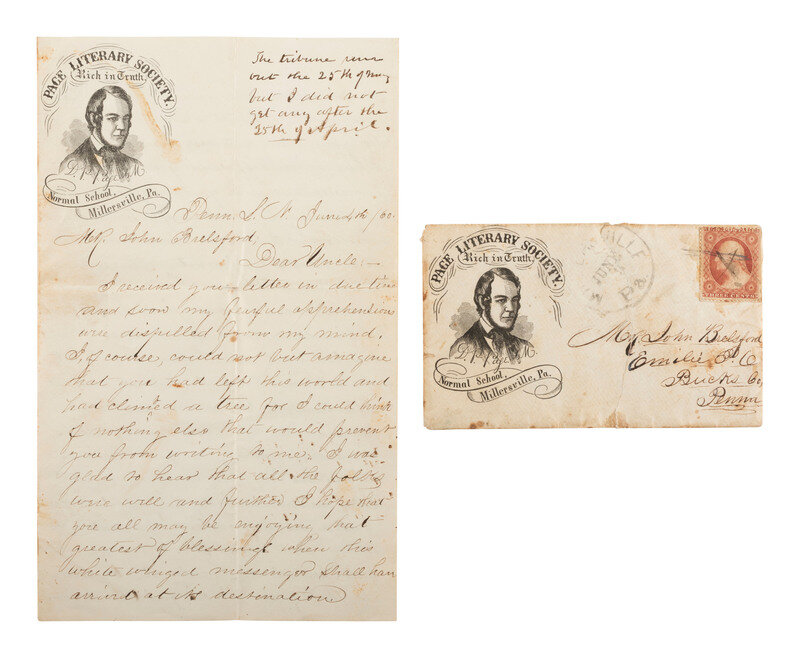 PAGE LITERARY SOCIETY.
Rich in Truth.
D. P. Page, A.M.
Normal School,
Millersville, Pa.
The tribune runs
out the 25th of May
but I did not
get any after the
25th of April.
Penn. S. N June 4th /60.
Mr. John Brelsford,
Dear Uncle:—
I received your letter in due time
and soon my fearful apprehensions
were dispelled from my mind.
I, of course, could not but amagine
that you had left this world and
had climed a tree for I could think
of nothing else that would prevent
you from writing to me. I was
glad to hear that all the folks
were well and further I hope that
you all may be enjoying that
greatest of blessings when this
white winged messenger shall have
arrived at its destination
PAGE LITERARY SOCIETY.
Rich in Truth.
D. P. Page, A.M.
Normal School,
Millersville, Pa.
VILLE
JUN
Pa
U.S. POSTAGE
THREE CENTS
Mr. John Brelsford
Emilie P. O.
Bucks Co,
Penna